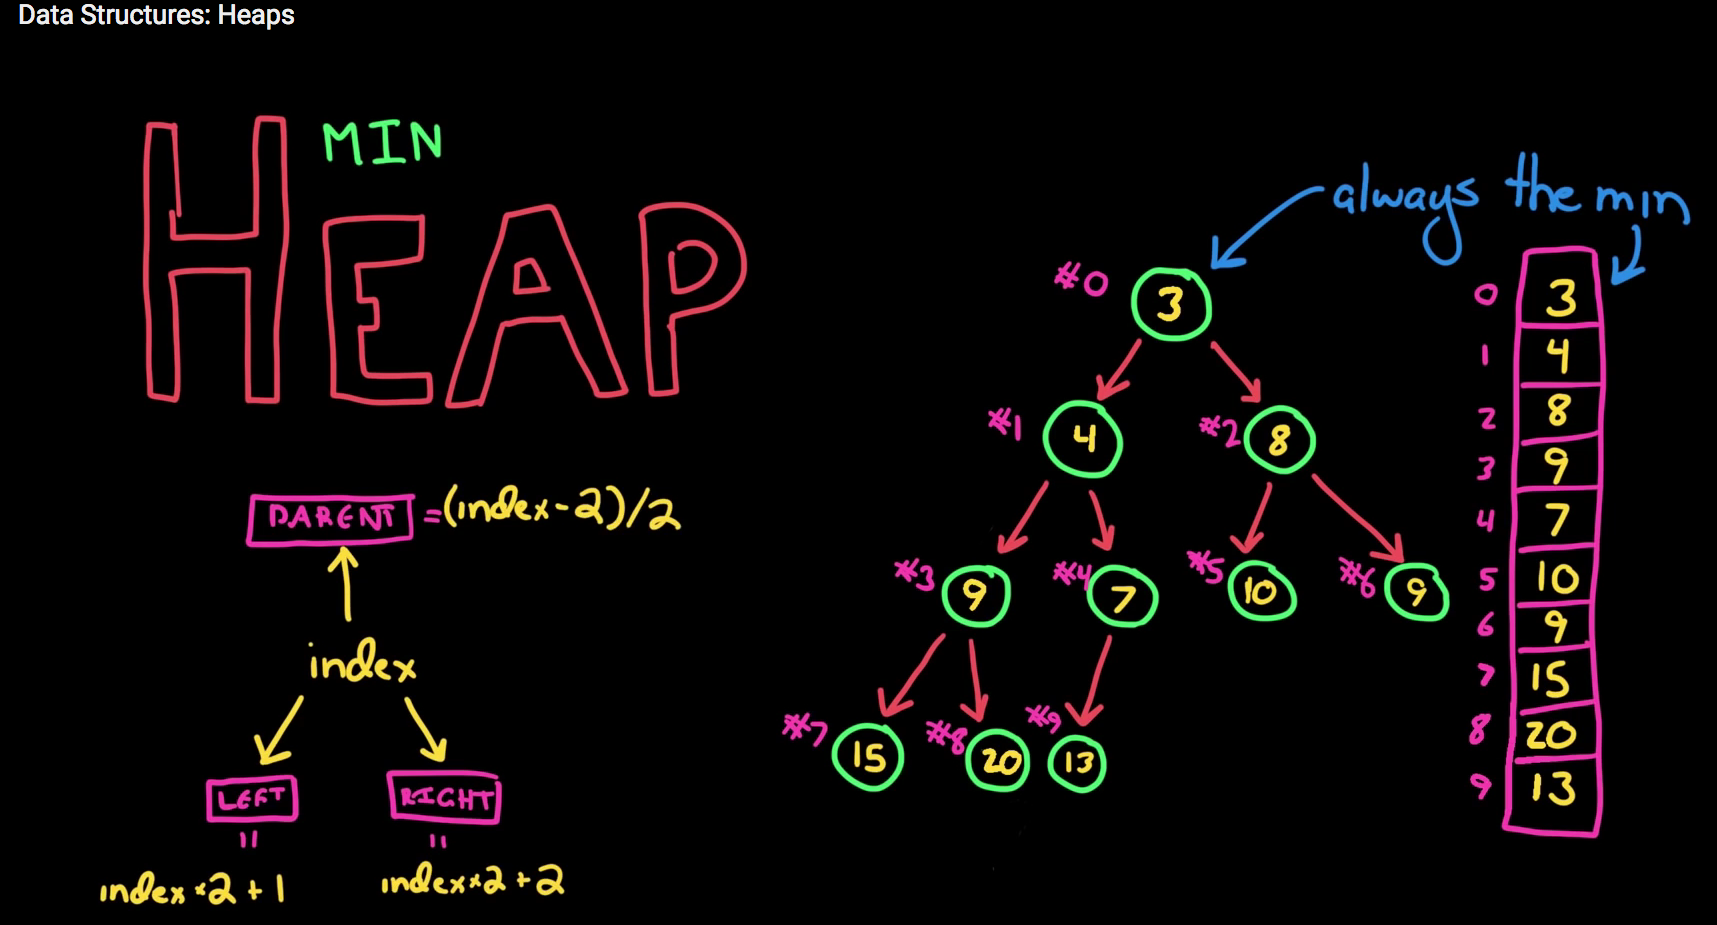 Data Structures: Heaps
MIN
HEAP
PARENT =(index-2)/2
index
LEFT RIGHT
= =
index*2+1 index*2+2
always the min
#0 3
#1 4 #2 8
#3 9 #4 7 #5 10 #6 9
#7 15 #8 20 #9 13
0 3
1 4
2 8
3 9
4 7
5 10
6 9
7 15
8 20
9 13